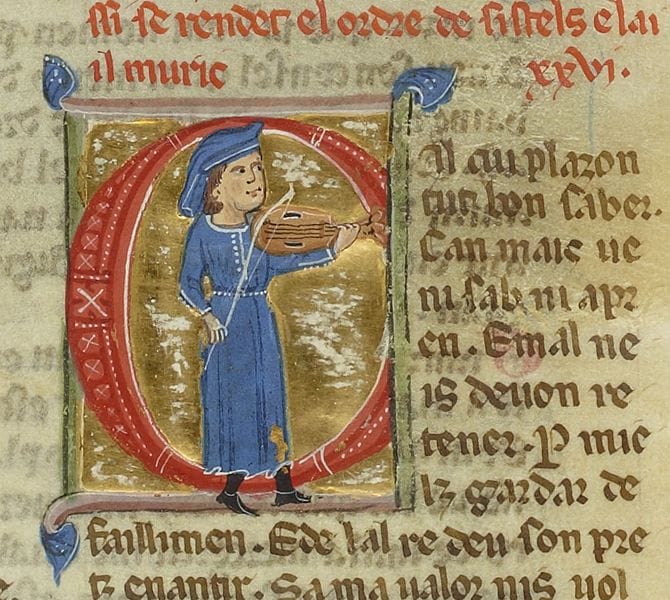 ssi se rendet el ordre de sistels e lai
il muric xxvi.
Al cui plazon
tut bon saber.
Can mais ue
ni sab ni apr
en. E mal ne
is deuon re
tener. P mie
lz gardar de
faillimen. E de lal re deu son pre
tz enantir. Sa ma ualor nis uol